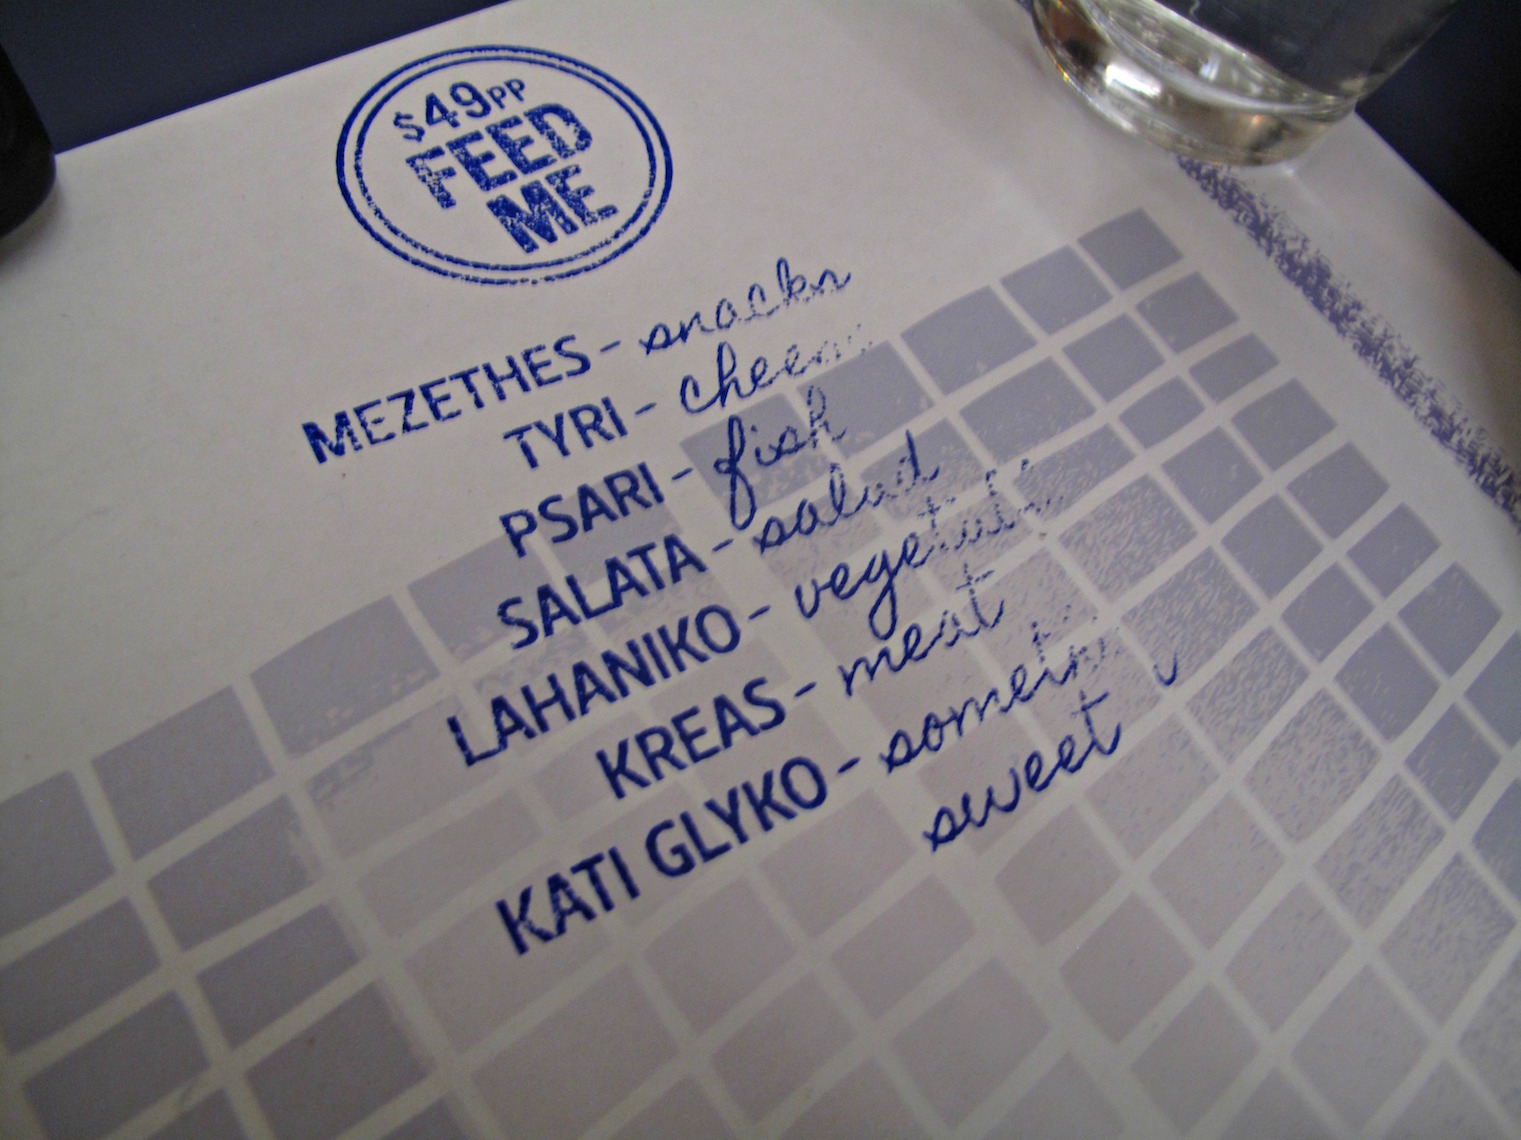 $49PP
FEED
ME
MEZETHES - snacks
TYRI - cheese
PSARI - fish
SALATA - salad
LAHANIKO - vegetable
KREAS - meat
KATI GLYKO - something
sweet